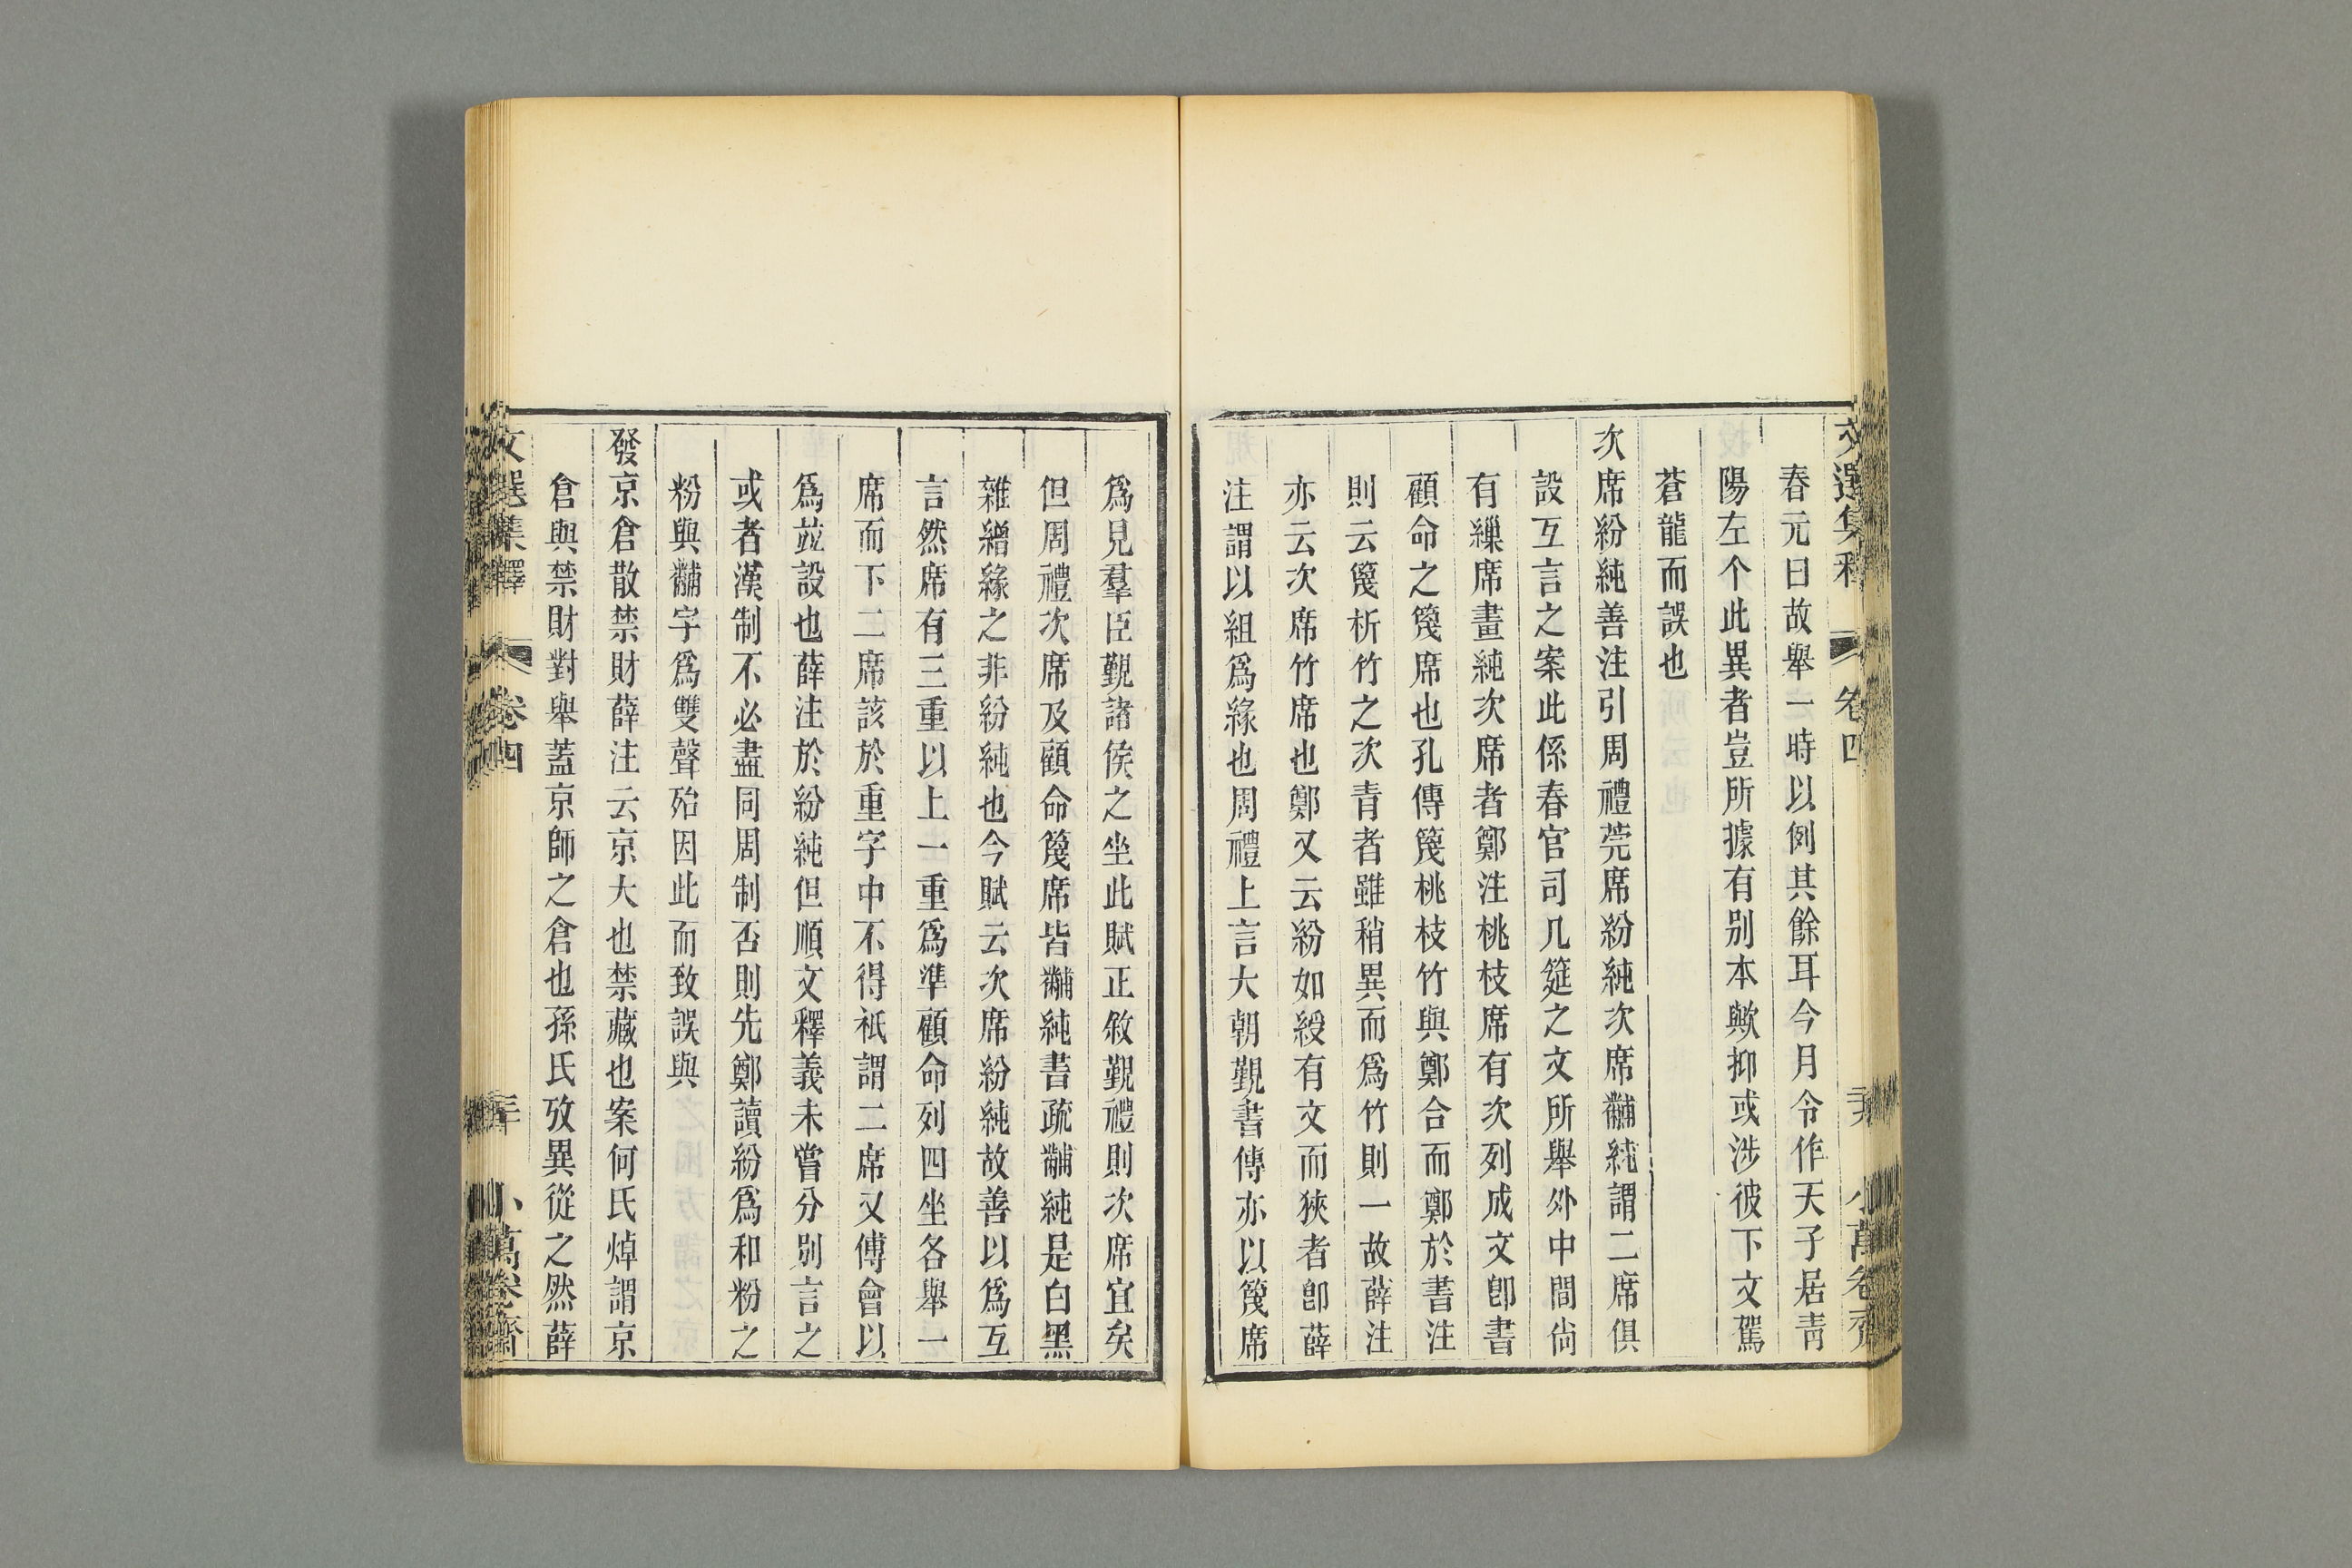 文選集釋 卷四 小萬卷齋
春元日故舉一時以例其餘耳今月令作天子居青
陽左个此異者豈所據有别本歟抑或涉彼下文駕
蒼龍而誤也
次席紛純善注引周禮莞席紛純次席黼純謂二席俱
設互言之案此係春官司几筵之文所舉外中間尙
有繅席畫純次席者鄭注桃枝席有次列成文卽書
顧命之篾席也孔傳篾桃枝竹與鄭合而鄭於書注
則云篾析竹之次青者雖稍異而爲竹則一故薛注
亦云次席竹席也鄭又云紛如綬有文而狹者卽薛
注謂以組爲緣也周禮上言大朝覲書傳亦以篾席
爲見羣臣覲諸侯之坐此賦正敘覲禮則次席宜矣
但周禮次席及顧命篾席皆黼純書疏黼純是白黑
雜繒緣之非紛純也今賦云次席紛純故善以爲互
言然席有三重以上一重爲準顧命列四坐各舉一
席而下二席該於重字中不得祇謂二席又傅會以
爲竝設也薛注於紛純但順文釋義未嘗分别言之
或者漢制不必盡同周制否則先鄭讀紛爲和粉之
粉與黼字爲雙聲殆因此而致誤與
發京倉散禁財薛注云京大也禁藏也案何氏焯謂京
倉與禁財對舉蓋京師之倉也孫氏攷異從之然薛
文選集釋 卷四 三十 小萬卷齋